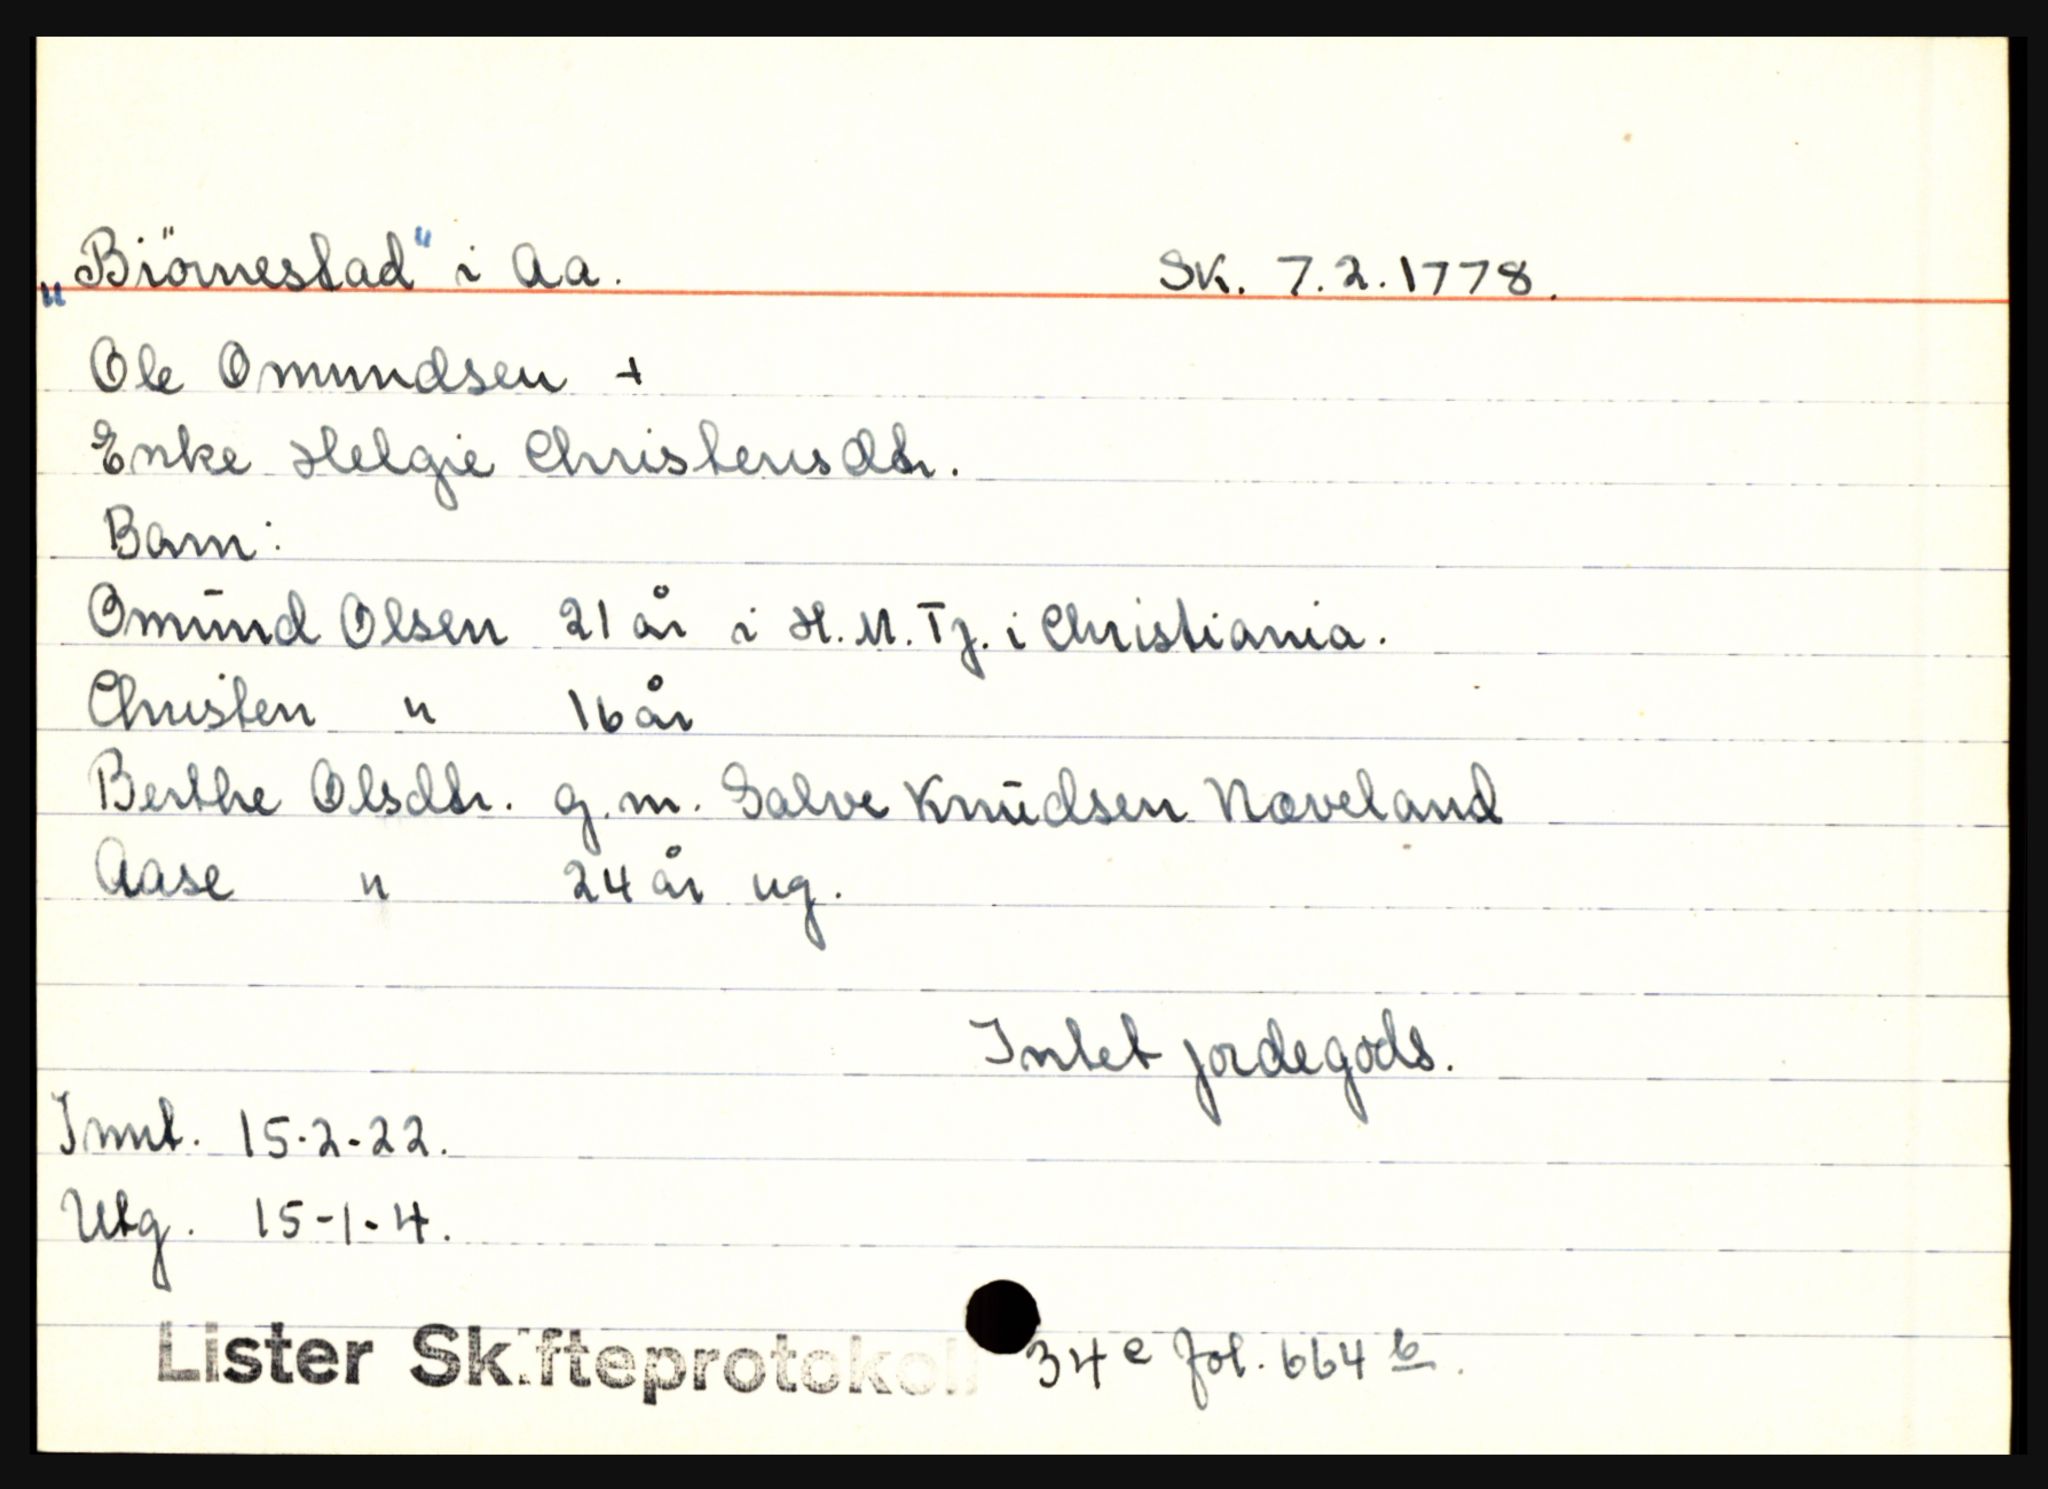 „Biörnestad“ i Aa. Sk. 7.2.1778.
Ole Omundsen +
Enke Helgie Christensdtr.
Barn:
Omund Olsen 21 år i H.M.Tj. i Christiania.
Christen " 16 år
Berthe Olsdtr. g.m. Salve Knudsen Næveland
Aase " 24 år ug.
Intet jordegods.
Innt. 15-2-22.
Utg. 15-1-4.
Lister Skifteprotokoll 34 e fol. 664 b.